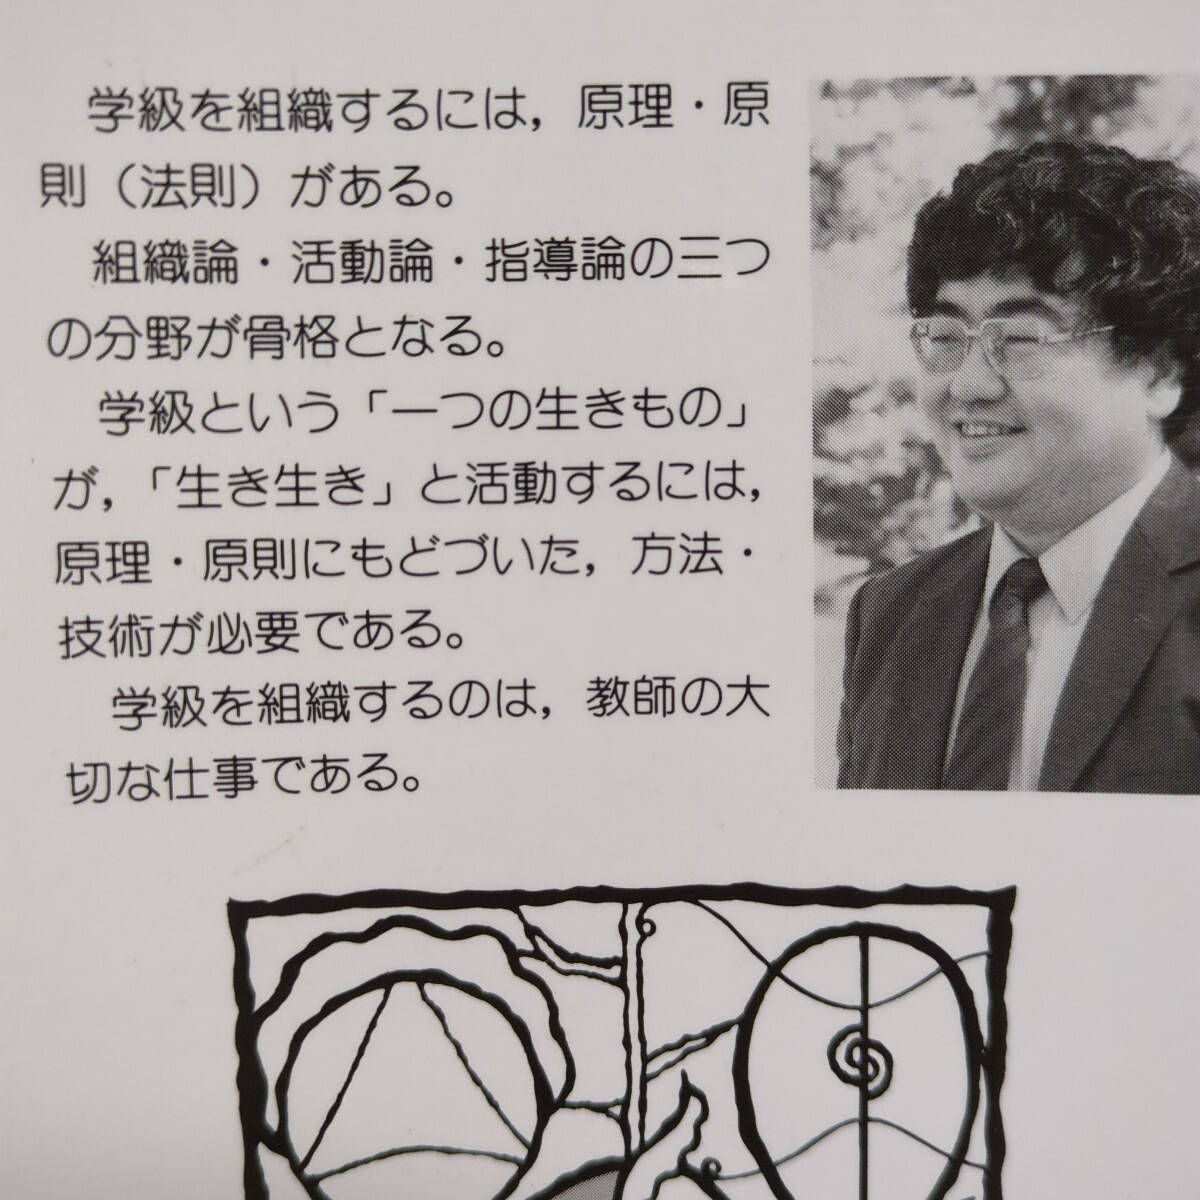 学級を組織するには，原理・原
則（法則）がある。
組織論・活動論・指導論の三つ
の分野が骨格となる。
学級という「一つの生きもの」
が，「生き生き」と活動するには，
原理・原則にもどづいた，方法・
技術が必要である。
学級を組織するのは，教師の大
切な仕事である。